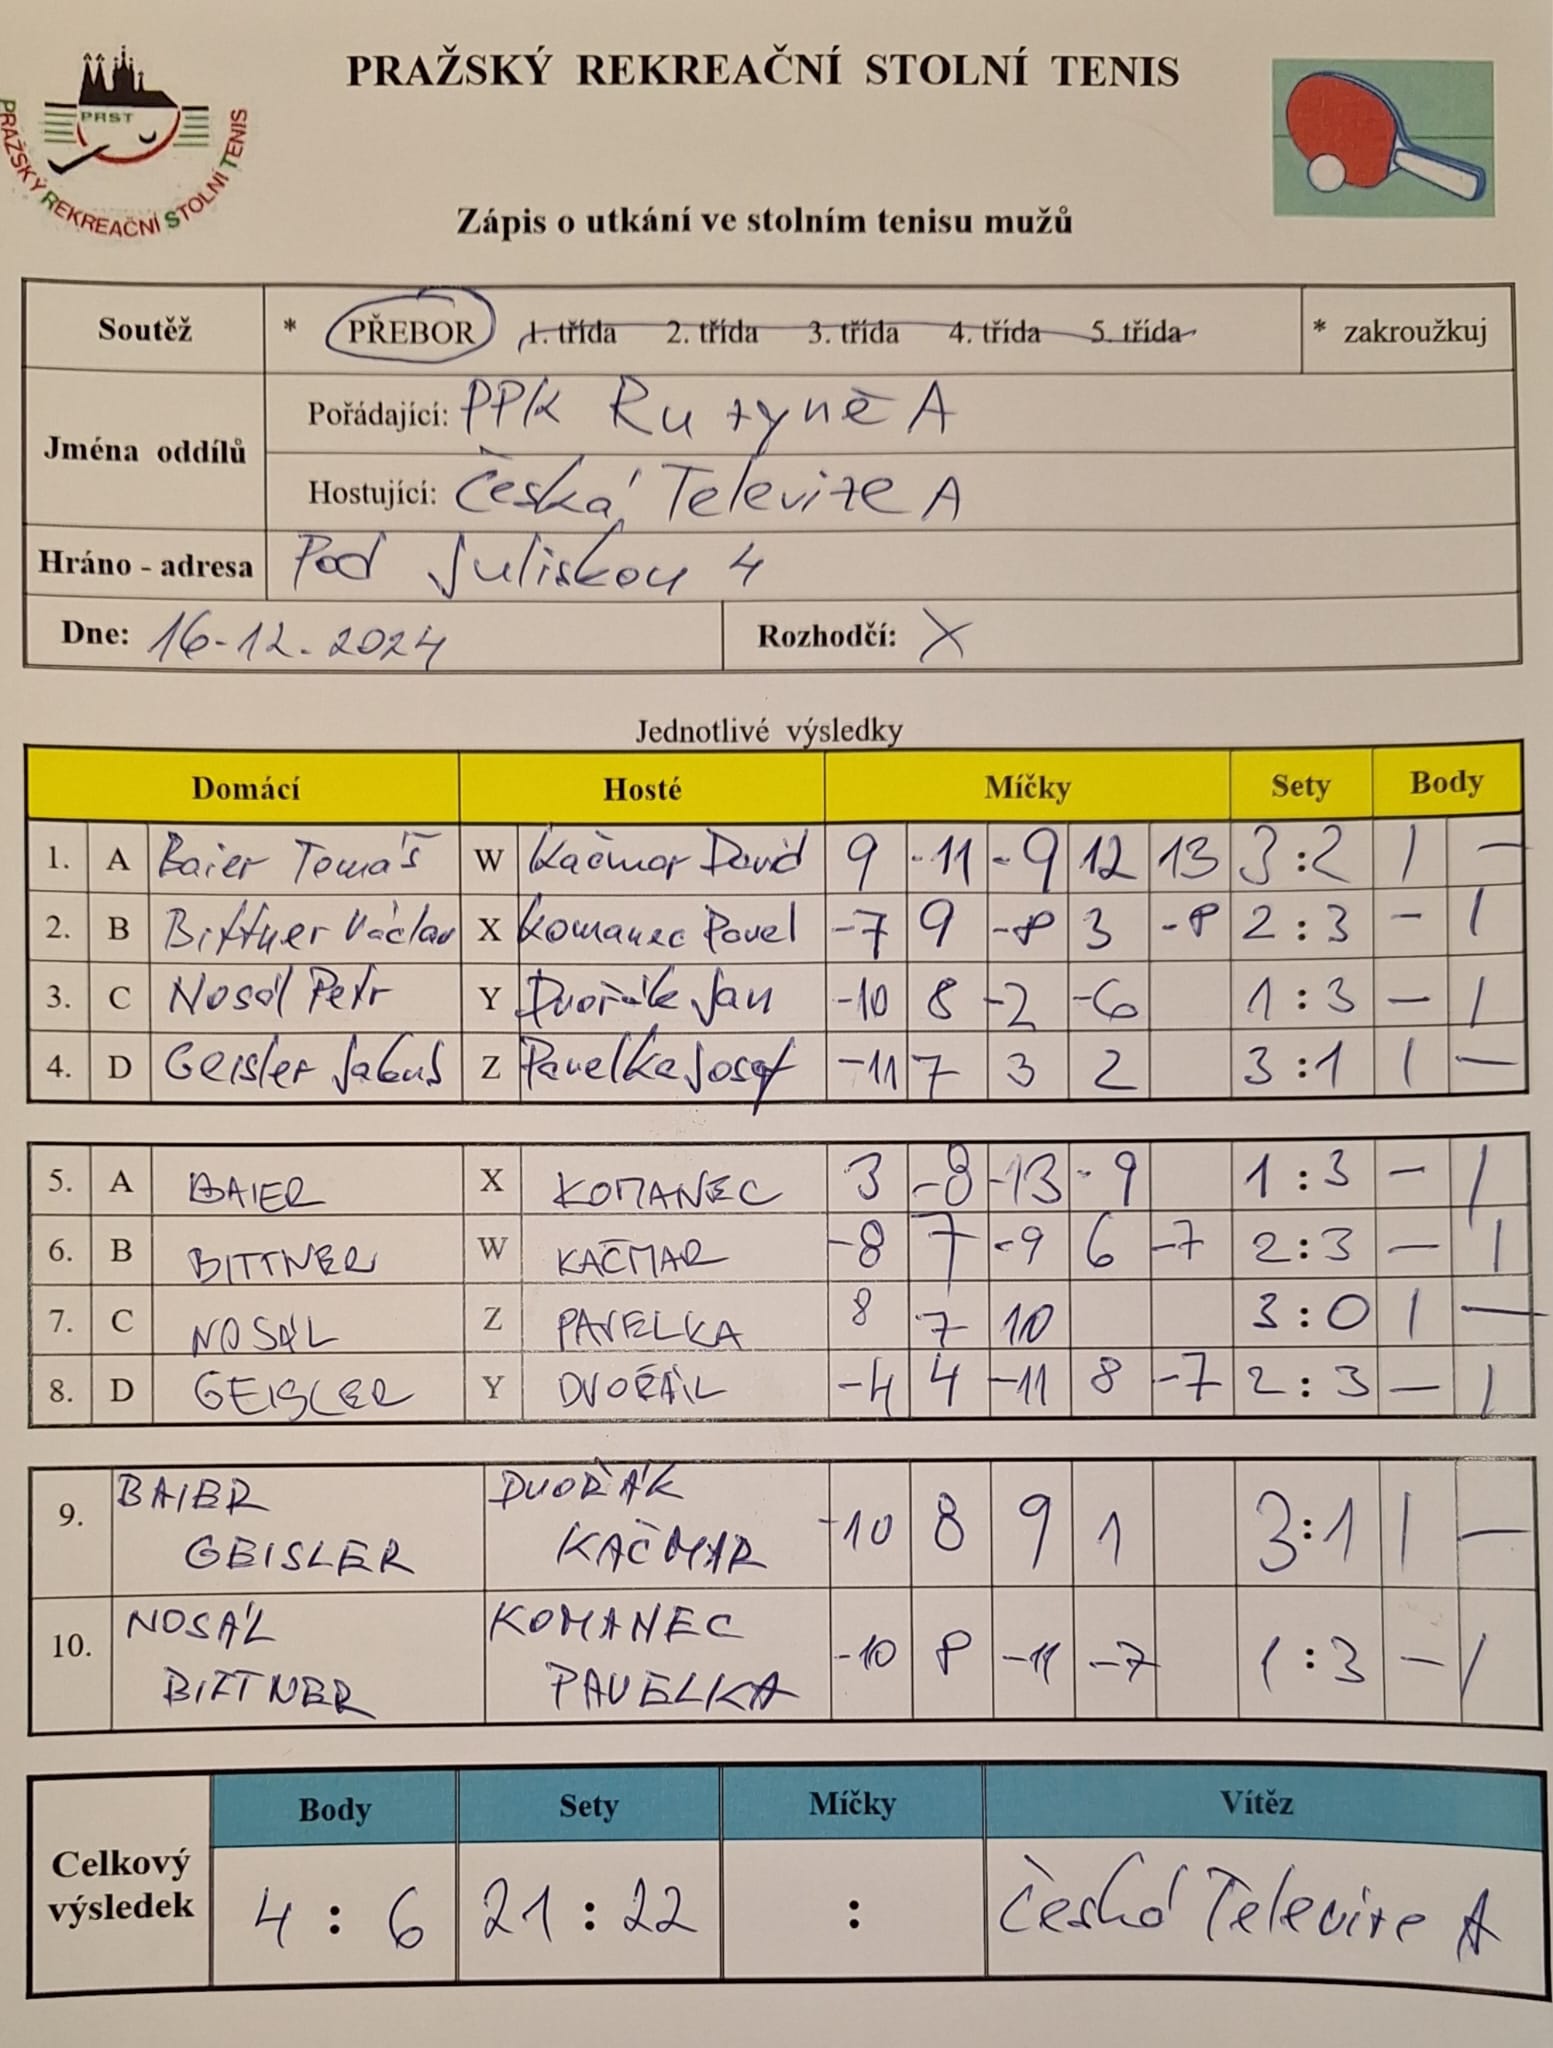 PRAŽSKÝ REKREAČNÍ STOLNÍ TENIS
PRST
PRAŽSKÝ REKREAČNÍ STOLNÍ TENIS
Zápis o utkání ve stolním tenisu mužů
Soutěž * PŘEBOR 1. třída 2. třída 3. třída 4. třída 5. třída * zakroužkuj
Jména oddílů
Pořádající: PPK Ruzyně A
Hostující: Česká Televize A
Hráno - adresa Pod Juliskou 4
Dne: 16-12.2024 Rozhodčí: X
Jednotlivé výsledky
Domácí Hosté Míčky Sety Body
1. A Baier Tomáš W Kačmar David 9 -11 -9 12 13 3:2 1 -
2. B Bittner Václav X Komanec Pavel -7 9 -8 3 -8 2:3 - 1
3. C Nosál Petr Y Dvořák Jan -10 8 -2 -6 1:3 - 1
4. D Geisler Jakub Z Pavelka Josef -11 7 3 2 3:1 1 -
5. A BAIER X KOMANEC 3 -8 -13 -9 1:3 - 1
6. B BITTNER W KAČMAR -8 7 -9 6 -7 2:3 - 1
7. C NOSÁL Z PAVELKA 8 7 10 3:0 1 -
8. D GEISLER Y DVOŘÁK -4 4 -11 8 -7 2:3 - 1
BAIER DVOŘÁK
9. GEISLER KAČMAR -10 8 9 1 3:1 1 -
NOSÁL KOMANEC
10. BITTNER PAVELKA -10 8 -11 -7 1:3 - 1
Body Sety Míčky Vítěz
Celkový výsledek 4 : 6 21 : 22 : Česká Televize A